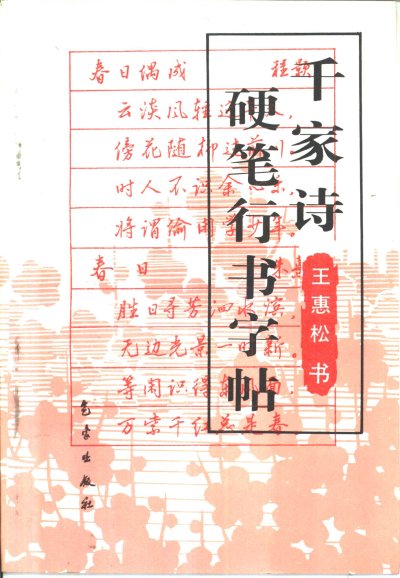 千家诗
硬笔行书字帖
王惠松书
春日偶成 程颢
云淡风轻近
傍花随柳过前川
时人不识余心乐,
将谓偷闲学少年。
春日 朱熹
胜日寻芳泗水滨,
无边光景一时新。
等闲识得东风面,
万紫千红总是春
气象出版社